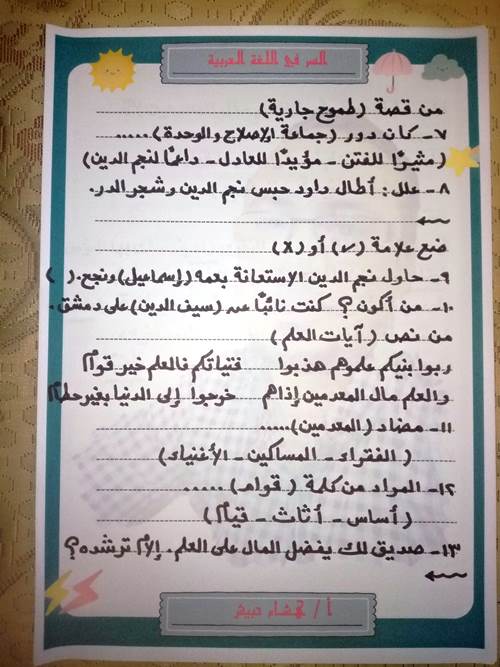 السر في اللغة العربية
من قصة (طموح جارية)
٧- كان دور (جماعة الإصلاح والوحدة) .....
(مثيرًا للفتن - مؤيدًا للعادل - داعمًا لنجم الدين)
٨- علل: أطال داود حبس نجم الدين وشجر الدر.
ضع علامة (✓) أو (X)
٩- حاول نجم الدين الاستعانة بعمه (إسماعيل) ونجح. ( )
١٠- من أكون؟ كنت نائبًا عن (سيف الدين) على دمشق.
من نص (آيات العلم)
ربوا بنيكم علموهم هذبوا فتياتكم فالعلم خير قوام
والعلم مال المعدمين إذا هم خرجوا إلى الدنيا بغير حطام
١١- مضاد (المعدمين) .....
(الفقراء - المساكين - الأغنياء)
١٢- المراد من كلمة (قوام) .....
(أساس - أثاث - قيام)
١٣- صديق لك يفضل المال على العلم. إلام ترشده؟
أ / هشام حبيش